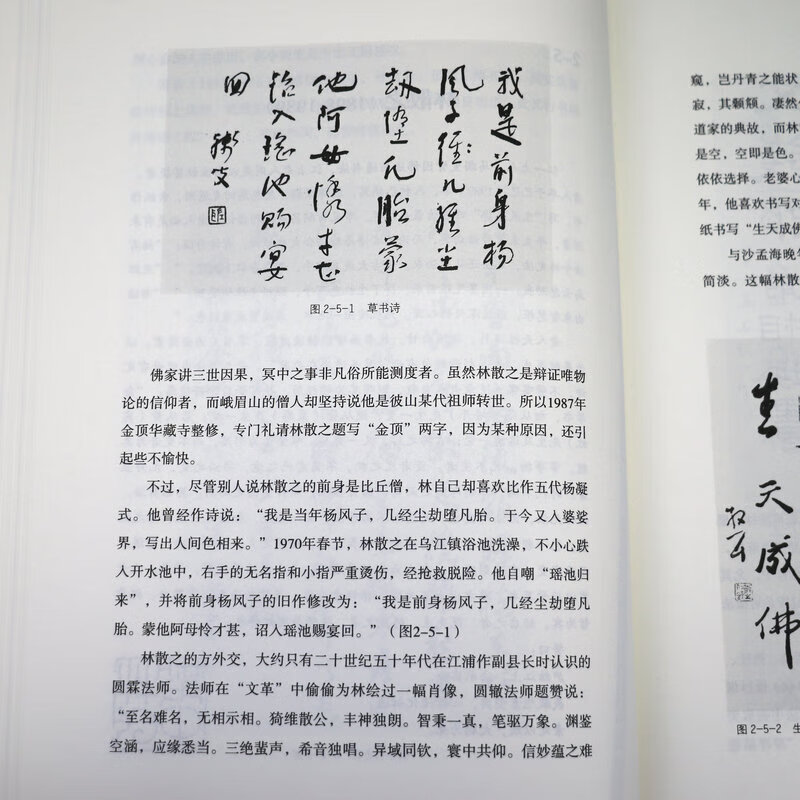 我是前身杨
风子几经尘
劫堕凡胎蒙
他阿母怜才甚
诏入瑶池赐宴
回
图2-5-1 草书诗
佛家讲三世因果，冥中之事非凡俗所能测度者。虽然林散之是辩证唯物
论的信仰者，而峨眉山的僧人却坚持说他是彼山某代祖师转世。所以1987年
金顶华藏寺整修，专门礼请林散之题写“金顶”两字，因为某种原因，还引
起些不愉快。
不过，尽管别人说林散之的前身是比丘僧，林自己却喜欢比作五代杨凝
式。他曾经作诗说：“我是当年杨风子，几经尘劫堕凡胎。于今又入婆娑
界，写出人间色相来。”1970年春节，林散之在乌江镇浴池洗澡，不小心跌
入开水池中，右手的无名指和小指严重烫伤，经抢救脱险。他自嘲“瑶池归
来”，并将前身杨风子的旧作修改为：“我是前身杨风子，几经尘劫堕凡
胎。蒙他阿母怜才甚，诏入瑶池赐宴回。”（图2-5-1）
林散之的方外交，大约只有二十世纪五十年代在江浦作副县长时认识的
圆霖法师。法师在“文革”中偷偷为林绘过一幅肖像，圆辙法师题赞说：
“至名难名，无相示相。猗维散公，丰神独朗。智秉一真，笔驱万象。渊鉴
空涵，应缘悉当。三绝蜚声，希音独唱。异域同钦，寰中共仰。信妙蕴之难
窥，岂丹青之能状
寂，其颗颡。凄然
道家的典故，而林
是空，空即是色。
依依选择。老婆心
年，他喜欢书写对
纸书写“生天成佛
与沙孟海晚
简淡。这幅林散
生天成佛
图2-5-2 生